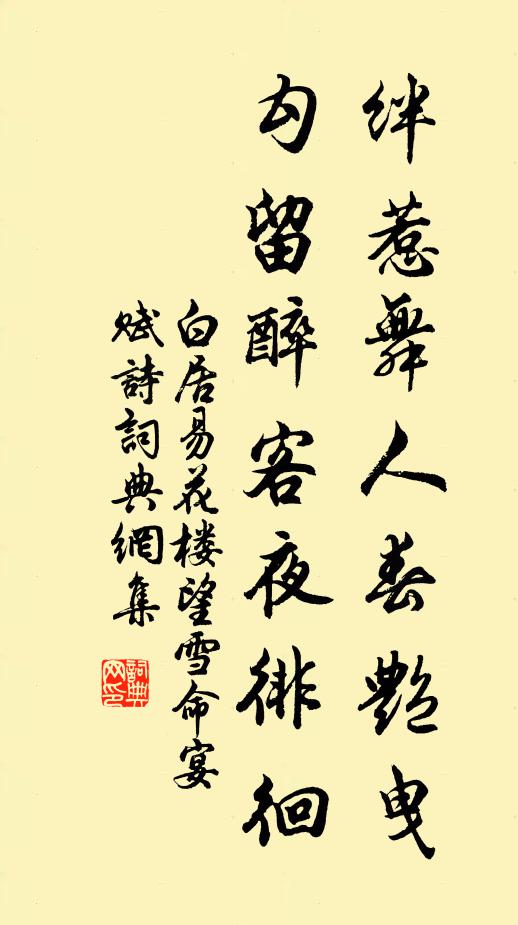 絆惹舞人春艷曳
勾留醉客夜徘徊
白居易花楼望雪命宴
赋詩詞典網集
詞典网印